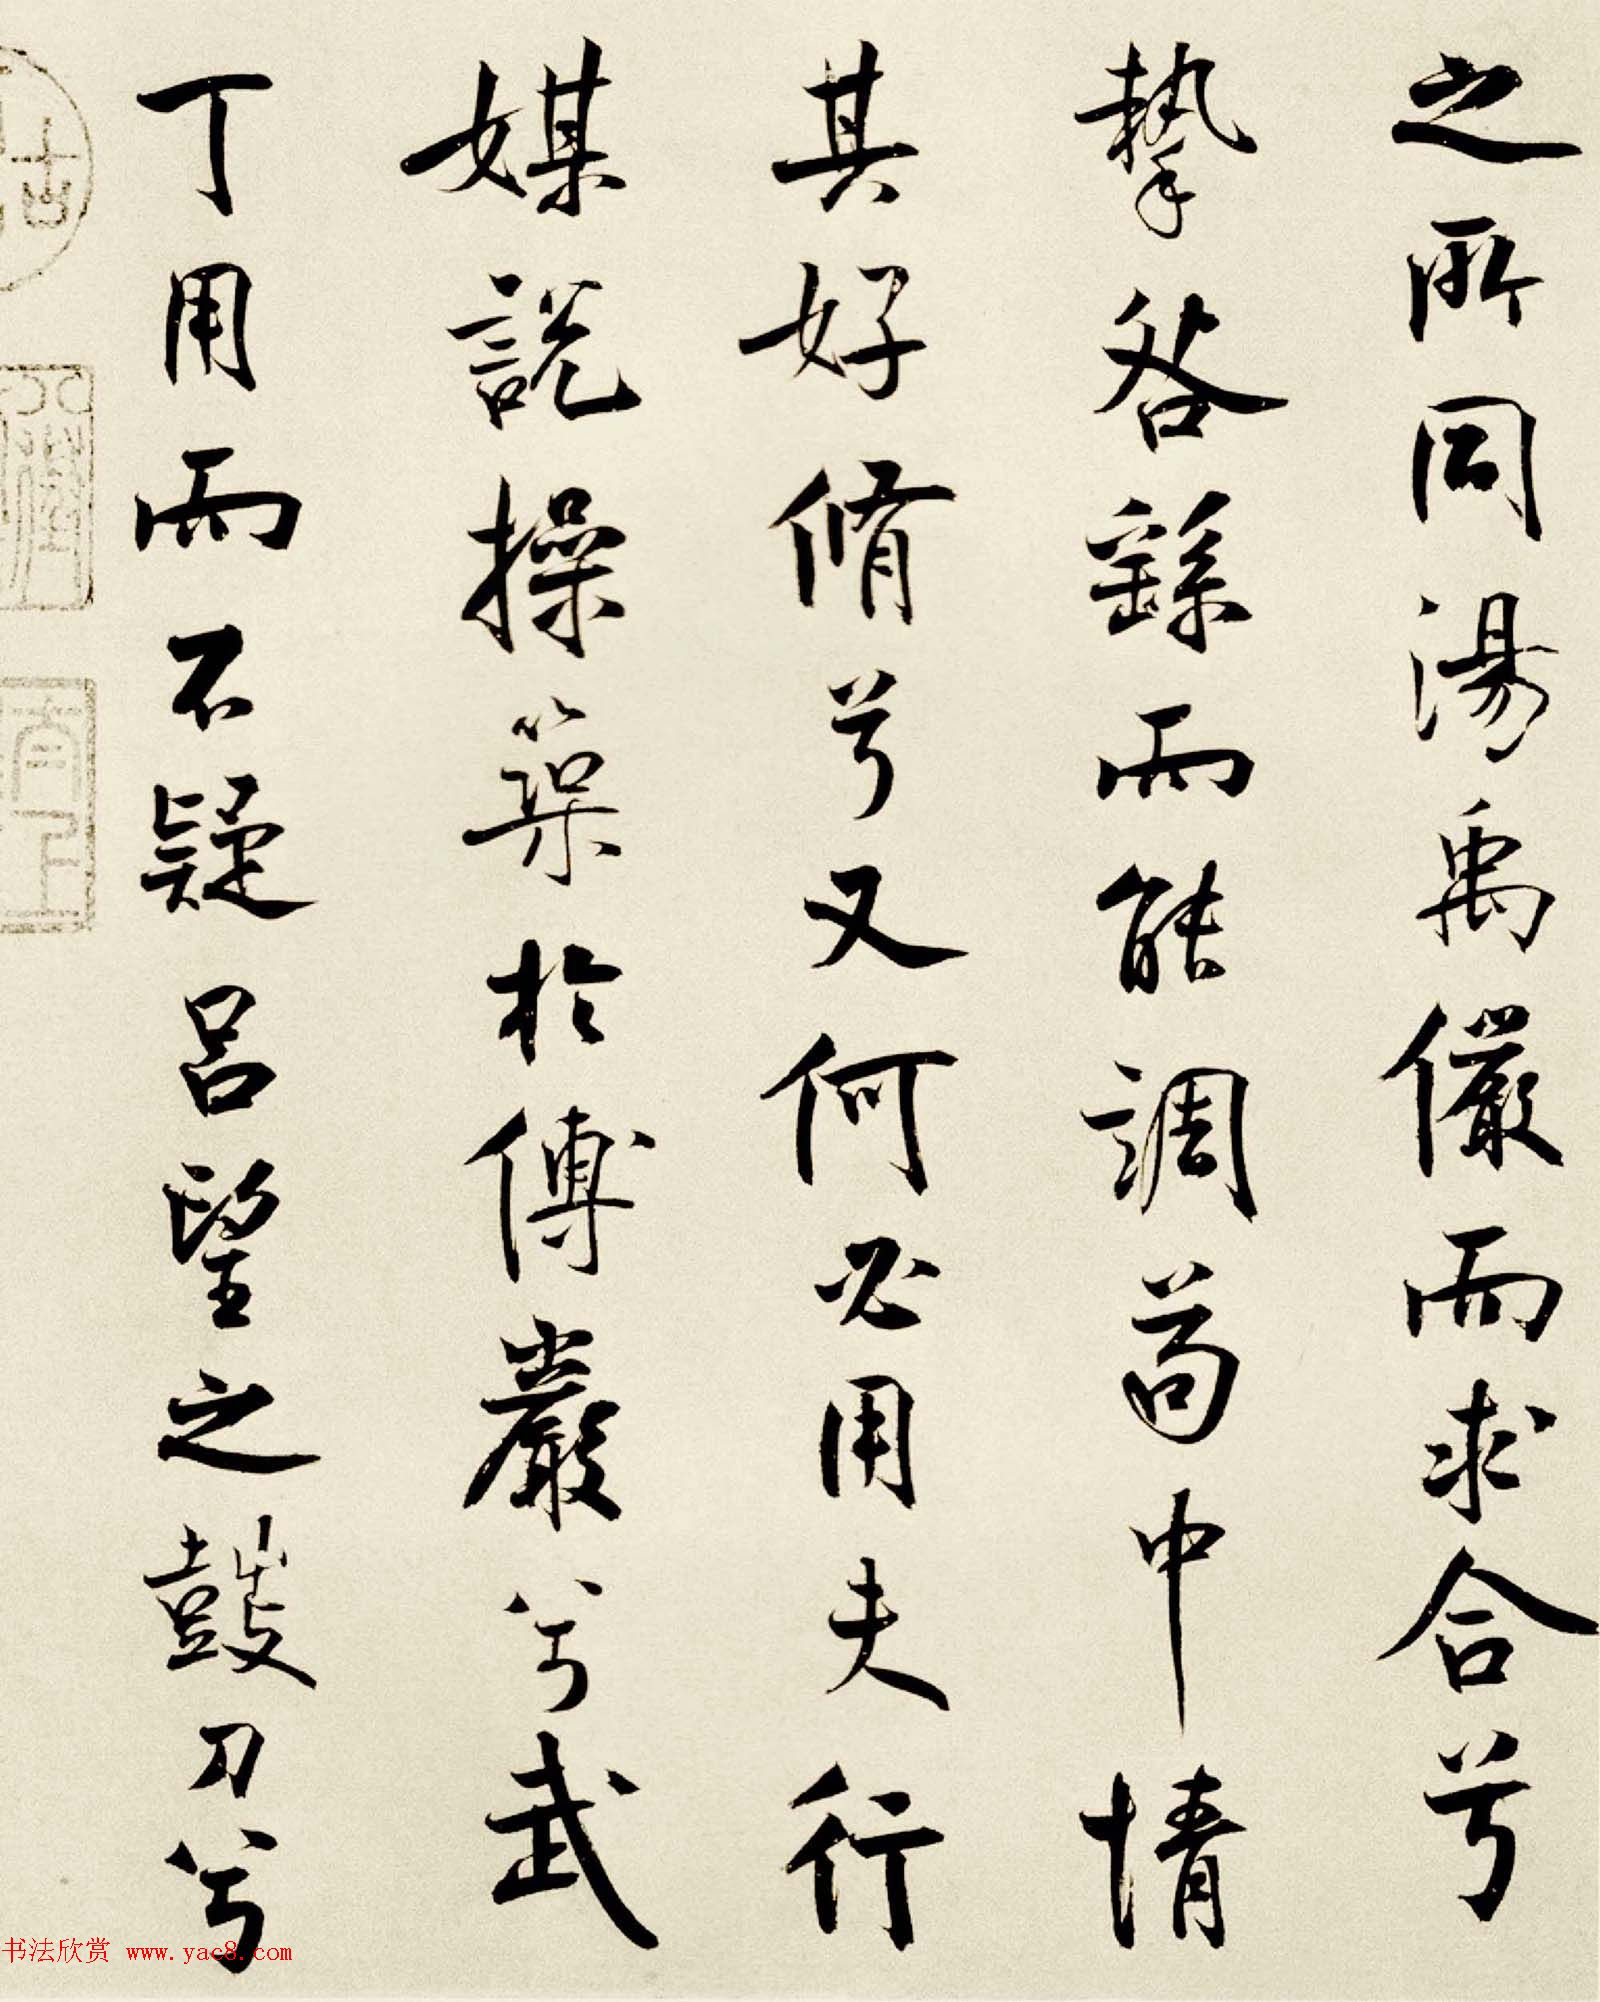 之所同湯禹儼而求合兮
摯咎繇而能調苟中情
其好脩兮又何必用夫行
媒說操築於傅巖兮武
丁用而不疑呂望之鼓刀兮
书法欣赏 www.yac8.com